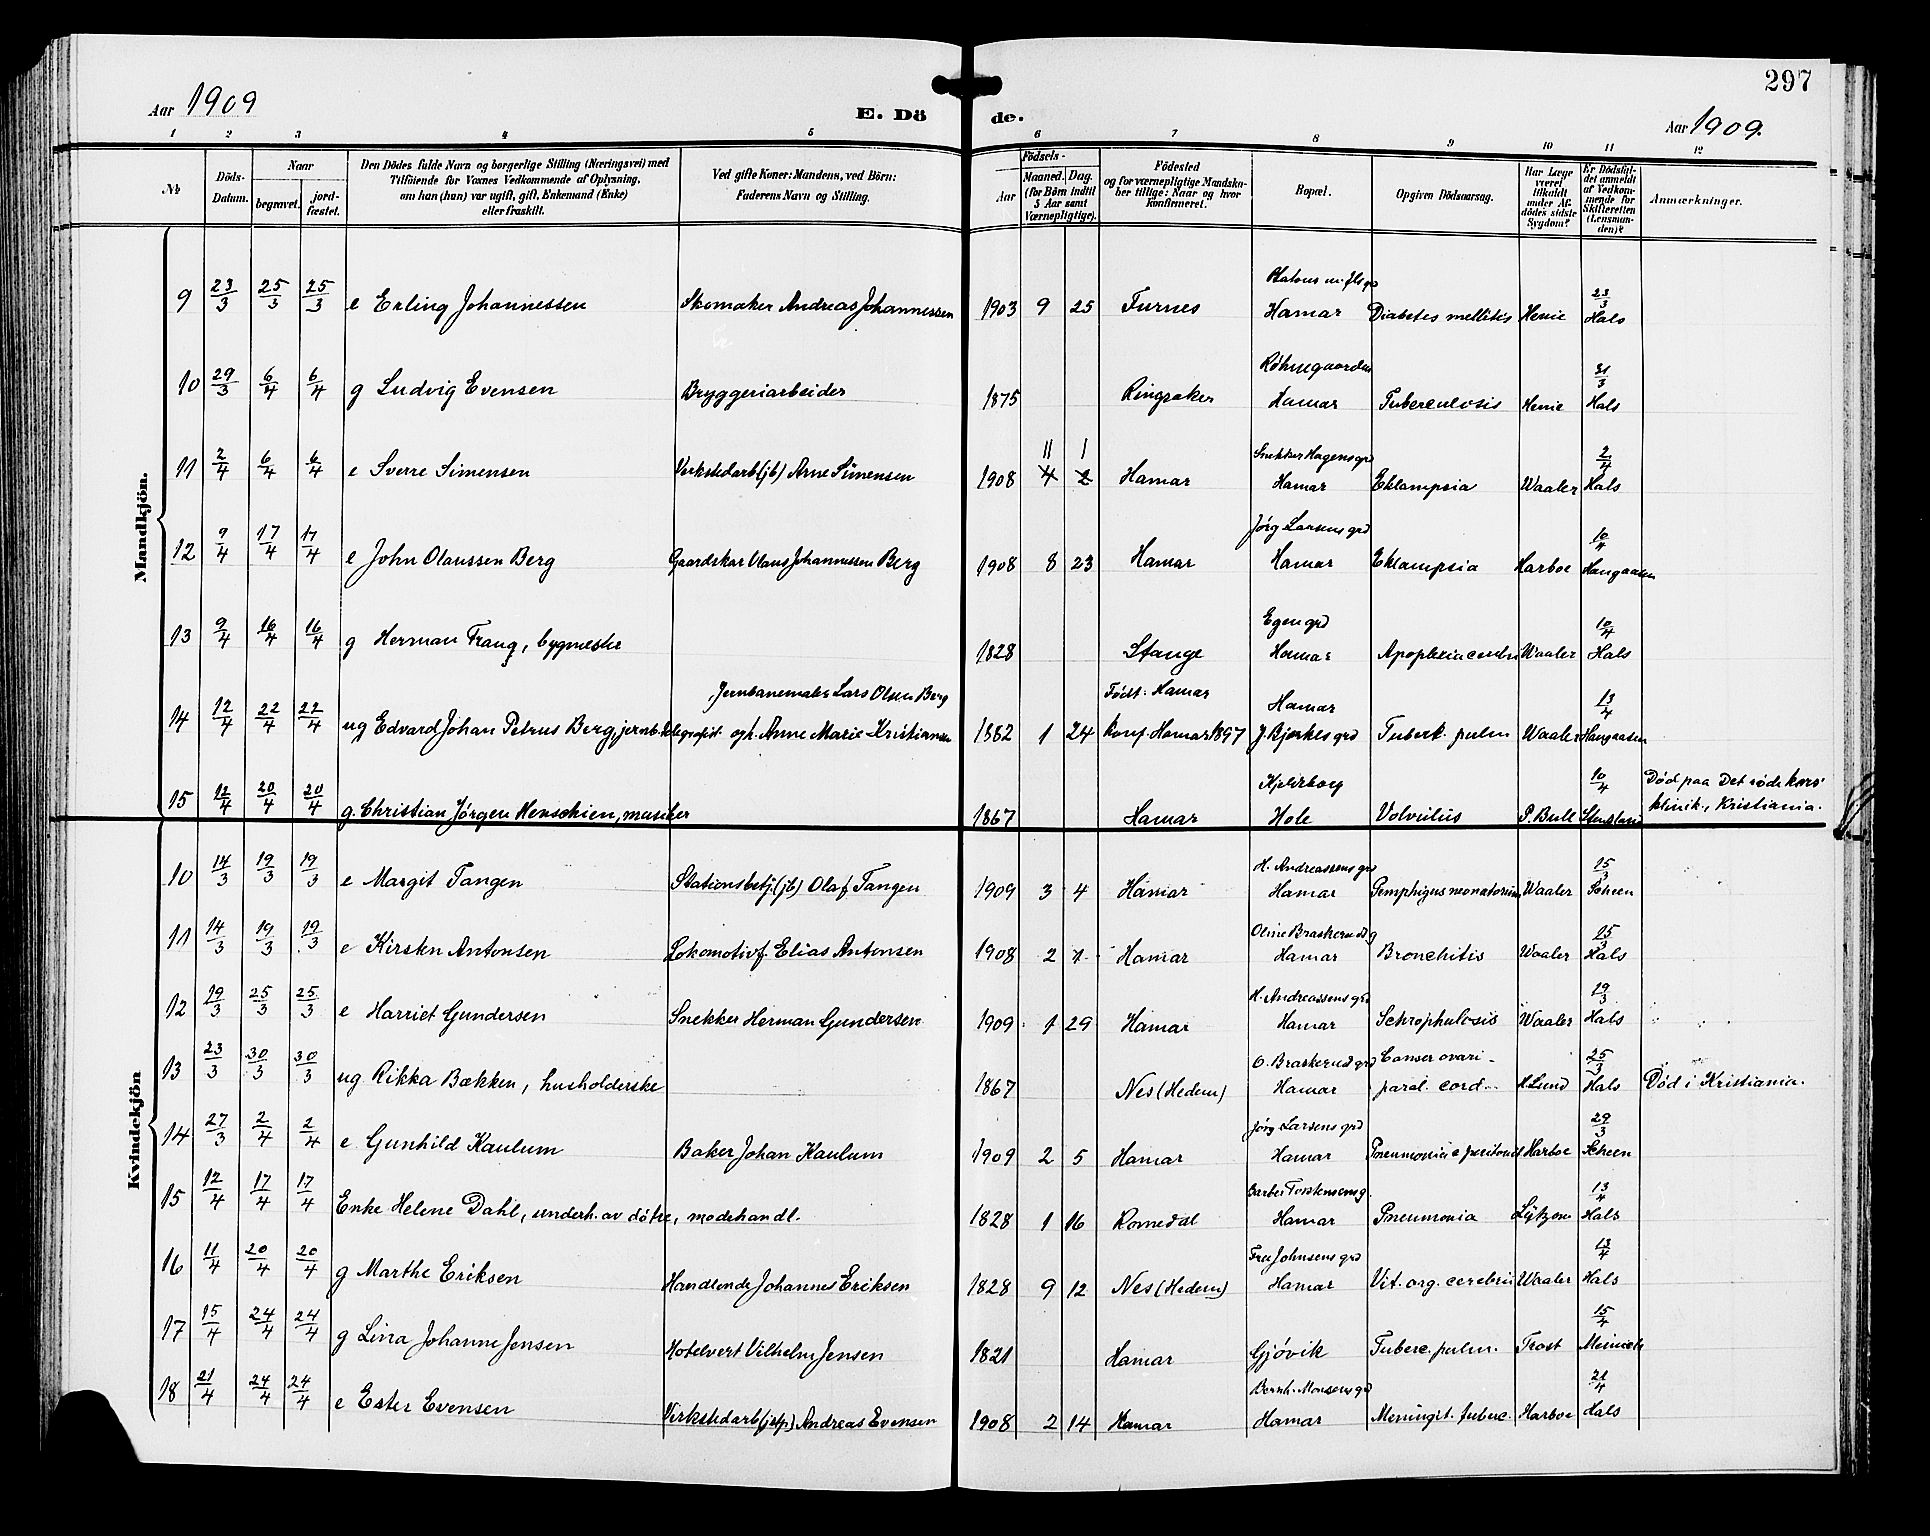 297
Aar 1909
E. Dö de.
Aar 1909.
1 2 3 4 5 6 7 8 9 10 11 12
No
Döds-Datum.
Naar
begravet.
jordfæstet.
Den Dödes fulde Navn og borgerlige Stilling (Næringsvei) med
Tilföiende for Voxnes Vedkommende af Oplysning,
om han (hun) var ugift, gift, Enkemand (Enke)
eller fraskilt.
Ved gifte Koner: Mandens, ved Börn:
Faderens Navn og Stilling.
Födsels-
Aar
Maaned. Dag.
(for Börn indtil
5 Aar samt
Værnepligtige).
Födested
og for værnepligtige Mandska-
ber tillige: Naar og hvor
konfirmeret.
Bopæl.
Opgiven Dödsaarsag.
Har Læge
været
tilkaldt
under Af-
dödes sidste
Sygdom?
Er Dödsfal-
det anmeldt
af Vedkom-
mende for
Skifteretten
(Lensman-
den)?
Anmærkninger.
Mandkjön.
9 23/3 25/3 25/3 e Erling Johannessen Skomaker Andreas Johannessen 1903 9 25 Furnes Hamar Diabetes mellitis Henie 23/3 Hals
10 29/3 6/4 6/4 g Ludvig Evensen Bryggeriarbeider 1875 Ringsaker Røhnegaarden Hamar Tuberculosis Henie 31/3 Hals
11 2/4 6/4 6/4 e Sverre Simensen Verkstedarb (jb) Arne Simensen 1908 11 1 4 2 Hamar Snekker Hagens grd Hamar Eklampsia Waaler 2/4 Hals
12 9/4 17/4 17/4 e John Olaussen Berg Gaardskar Olaus Johannessen Berg 1908 8 23 Hamar Jørg Larsens grd Hamar Eklampsia Harboe 10/4 Haugaasen
13 9/4 16/4 16/4 g Herman Frang, bygmester 1828 Stange Egen grd Hamar Apoplexia cerebri Waaler 10/4 Hals
14 12/4 22/4 22/4 ug Edvard Johan Petrus Berg, jernb.telegrafist Jernbanemaler Lars Olsen Berg
og h. Anne Marie Kristiansen 1882 1 24 Født: Hamar
Konf. Hamar 1897 Hamar
J. Bjerkes grd Tuberk. pulm Waaler 13/4 Haugaasen
15 12/4 20/4 20/4 g. Christian Jørgen Henschien, musiker 1867 Hamar Hole Volvulus P. Bull 10/4 Død paa Det røde kors'
klinik, Kristiania.
Kvindekjön
10 14/3 19/3 19/3 e Margit Tangen Stationsbetj. (jb) Olaf Tangen 1909 3 4 Hamar H. Andreassens grd Hamar Pemphigus neonatorum Waaler 15/3 Scheen
11 14/3 19/3 19/3 e Kirsten Antonsen Lokomotivf. Elias Antonsen 1908 2 1 Hamar Oline Braskerud g Hamar Bronchitis Waaler 15/3 Hals
12 19/3 25/3 25/3 e Harriet Gundersen Snekker Herman Gundersen 1909 1 29 Hamar H. Andreassens grd Hamar Schrophulosis Waaler 19/3 Hals
13 23/3 30/3 30/3 ug Rikka Bækken, husholderske 1867 Nes (Hedem) O. Braskerud grd Hamar Canser ovari-
paral. cord.. Lund 25/3 Hals Død i Kristiania.
14 27/3 2/4 2/4 e Gunhild Kaulum Baker Johan Kaulum 1909 2 5 Hamar Jørg Larsens grd Hamar Pneumonia Harboe 29/3 Scheen
15 12/4 17/4 17/4 Enke Helene Dahl, underh. av døtre, modehandl. 1828 1 16 Romedal Hamar Pneumonia Lützow 13/4 Hals
16 11/4 20/4 20/4 g Marthe Eriksen Handlende Johannes Eriksen 1828 9 12 Nes (Hedem) Fru Johnsens grd Hamar Vit. org. cerebri Waaler 13/4 Hals
17 15/4 24/4 24/4 g Lina Johanne Jensen Hotelvert Vilhelm Jensen 1821 Hamar Gjøvik Tuberc. pulm. Trost 15/4
18 21/4 24/4 24/4 e Ester Evensen Verkstedarb (jstp) Andreas Evensen 1908 2 14 Hamar Bernh. Monsens grd Hamar Meningit. tuberc. Harboe 21/4 Hals